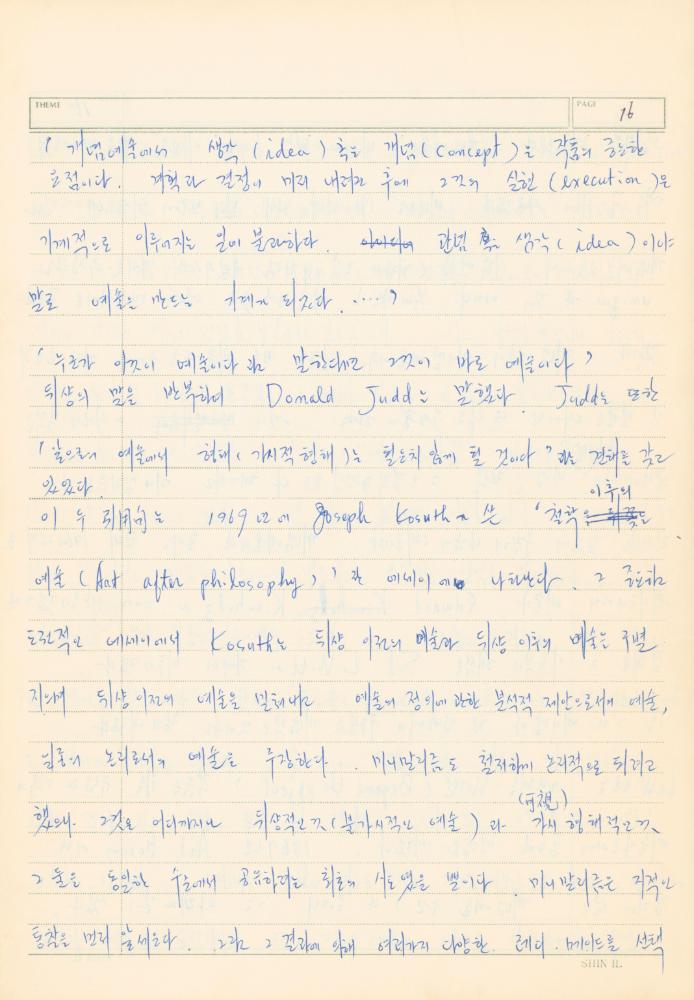 THEME
PAGE
16
「개념예술에서 생각 (idea) 혹은 개념 (concept)은 작품의 중요한
요점이다. 계획과 결정이 미리 내려진 후에 그것의 실현 (execution)은
기계적으로 이루어지는 일에 불과하다. 관념 혹은 생각 (idea)이야
말로 예술을 만드는 기계가 되겠다. ....」
「누군가 이것이 예술이다 라고 말한다면 그것이 바로 예술이다」
뒤샹의 말을 반복하며 Donald Judd는 말했다. Judd는 또한
「앞으로의 예술에서 형태(가시적 형태)는 필요치 않게 될 것이다」라는 견해를 갖고
있었다.
이후의
이 두 引用句는 1969년에 Joseph Kosuth가 쓴 「철학
예술 (Art after philosophy)」란 에세이에 나타난다. 그 중요하고
도전적인 에세이에서 Kosuth는 뒤샹 이전의 예술과 뒤샹 이후의 예술을 구별
지으며 뒤샹 이전의 예술을 밀쳐내고 예술의 정의에 관한 분석적 제안으로서의 예술,
일종의 논리로서의 예술을 주장한다. 미니말리즘도 철저하게 논리적으로 되려고
(可視)
했으나 그것은 어디까지나 뒤샹적인 것 (불가시적인 예술)과 가시 형태적인 것,
그 둘을 동일한 수준에서 공유하려는 최초의 시도였을 뿐이다. 미니말리즘은 지적인
통찰을 먼저 앞세운다. 그리고 그 결과에 의해 여러가지 다양한 레디·메이드를 선택
SHIN IL